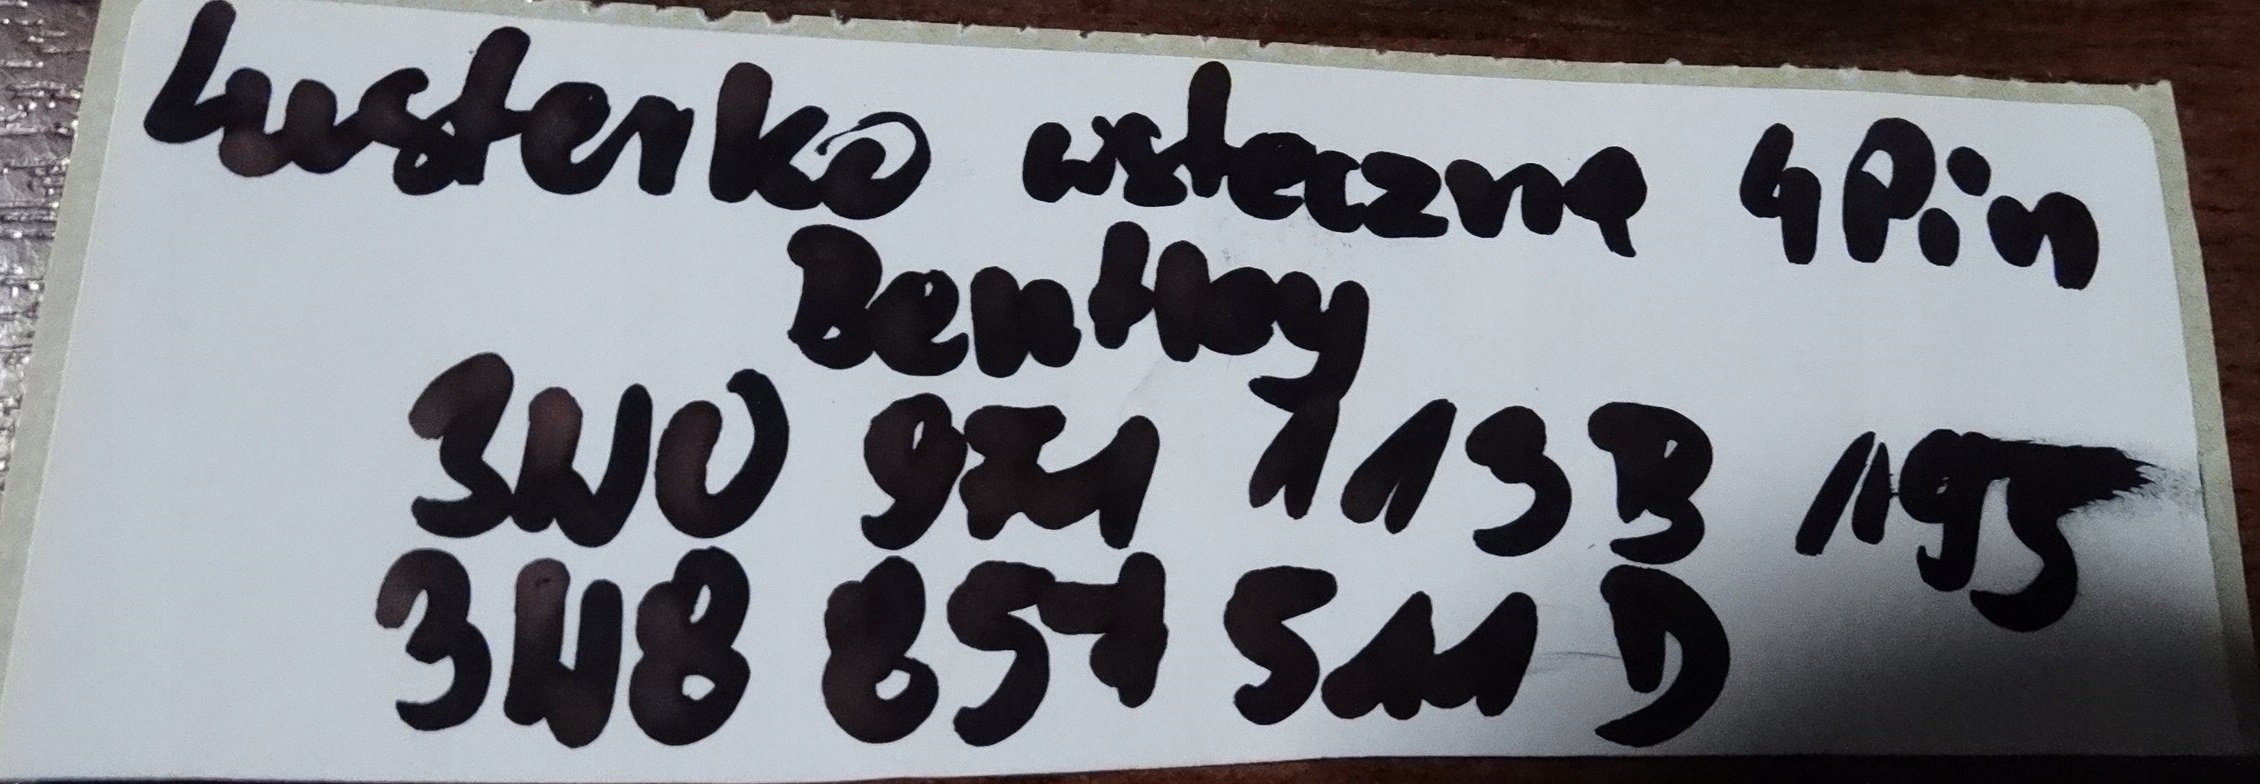 Lusterko wsteczne 4Pin
Bentley
3W0 971 113 B 195
3W8 857 511 D